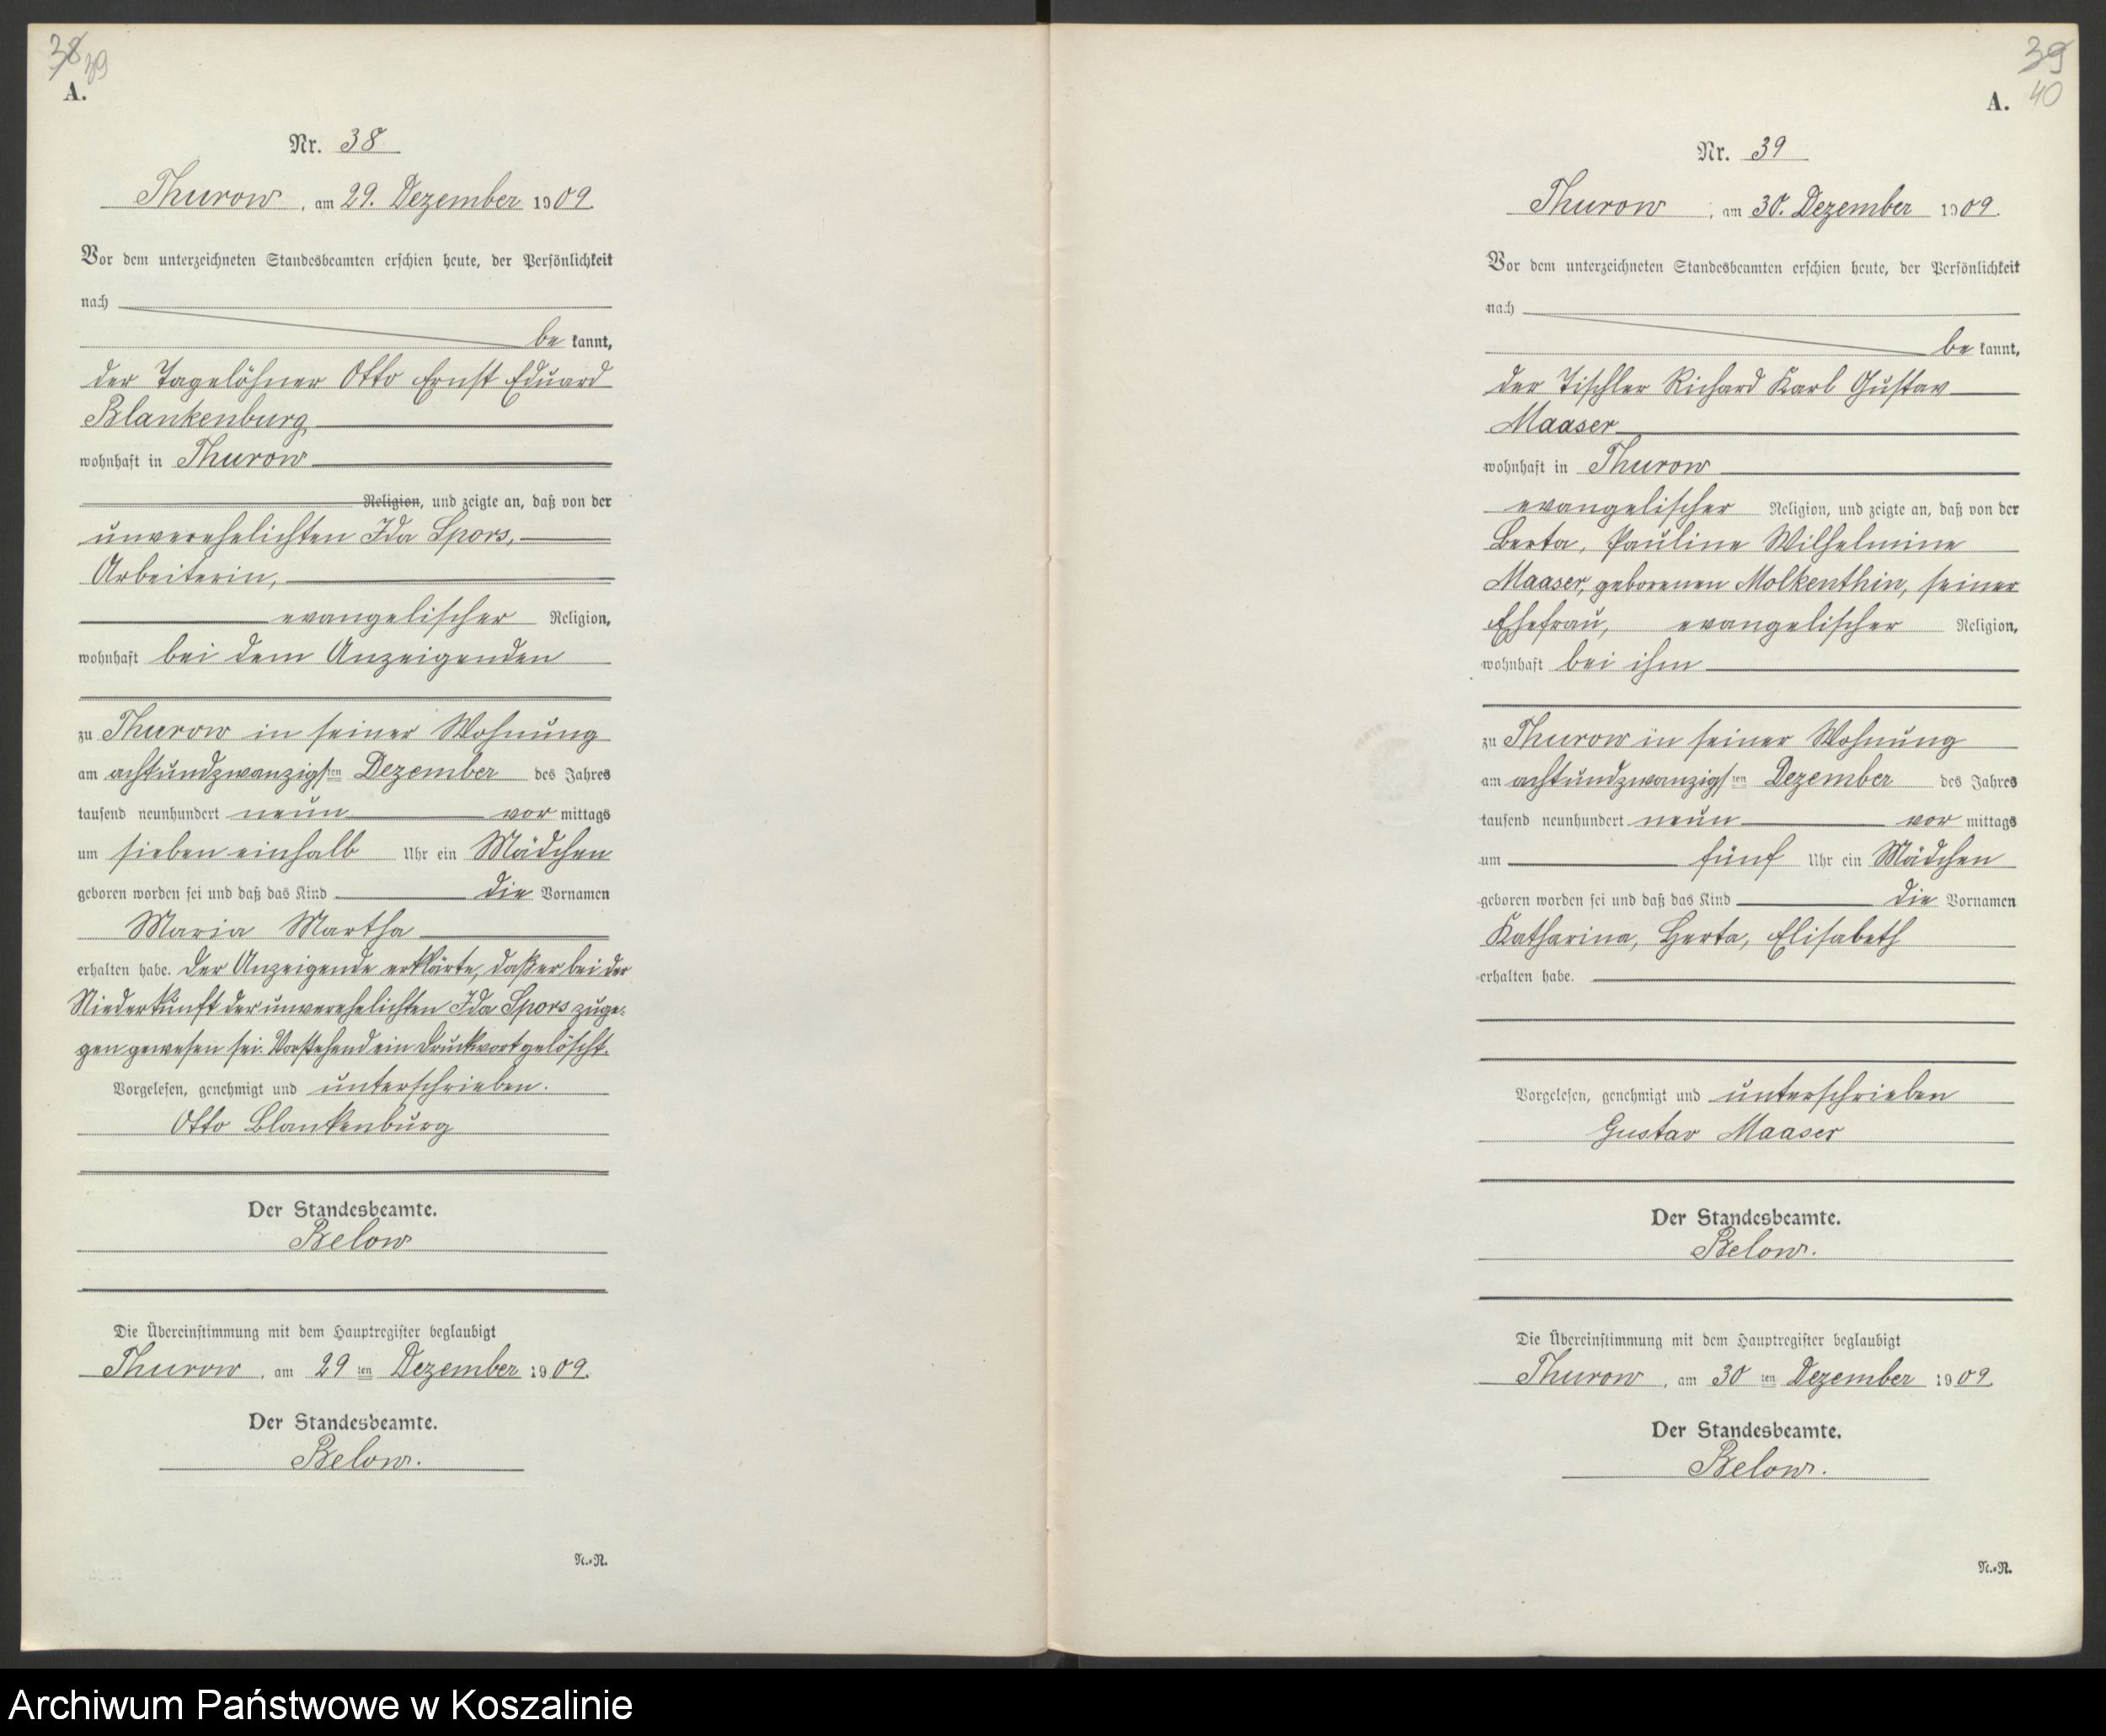 38 39
A.
Nr. 38
Thurow, am 29. Dezember 1909.
Vor dem unterzeichneten Standesbeamten erschien heute, der Persönlichkeit
nach
be kannt,
der Tagelöhner Otto Ernst Eduard
Blankenburg
wohnhaft in Thurow
Religion, und zeigte an, daß von der
unverehelichten Ida Spors,
Arbeiterin,
evangelischer Religion,
wohnhaft bei dem Anzeigenden
zu Thurow in seiner Wohnung
am achtundzwanzigsten Dezember des Jahres
tausend neunhundert neun vor mittags
um sieben einhalb Uhr ein Mädchen
geboren worden sei und daß das Kind die Vornamen
Maria Martha
erhalten habe. Der Anzeigende erklärte, daß er bei der
Niederkunft der unverehelichten Ida Spors zuge-
gen gewesen sei. Vorstehend ein Druckwort gelöscht.
Vorgelesen, genehmigt und unterschrieben.
Otto Blankenburg
Der Standesbeamte.
Below
Die Übereinstimmung mit dem Hauptregister beglaubigt
Thurow, am 29 ten Dezember 1909.
Der Standesbeamte.
Below.
N.-R.
39
40
A.
Nr. 39
Thurow, am 30. Dezember 1909.
Vor dem unterzeichneten Standesbeamten erschien heute, der Persönlichkeit
nach
be kannt,
der Tischler Richard Karl Gustav
Maaser
wohnhaft in Thurow
evangelischer Religion, und zeigte an, daß von der
Berta, Pauline Wilhelmine
Maaser, geborenen Molkenthin, seiner
Ehefrau, evangelischer Religion,
wohnhaft bei ihm
zu Thurow in seiner Wohnung
am achtundzwanzigsten Dezember des Jahres
tausend neunhundert neun vor mittags
um fünf Uhr ein Mädchen
geboren worden sei und daß das Kind die Vornamen
Katharina, Herta, Elisabeth
erhalten habe.
Vorgelesen, genehmigt und unterschrieben
Gustav Maaser
Der Standesbeamte.
Below.
Die Übereinstimmung mit dem Hauptregister beglaubigt
Thurow, am 30 ten Dezember 1909.
Der Standesbeamte.
Below.
N.-R.
Archiwum Państwowe w Koszalinie